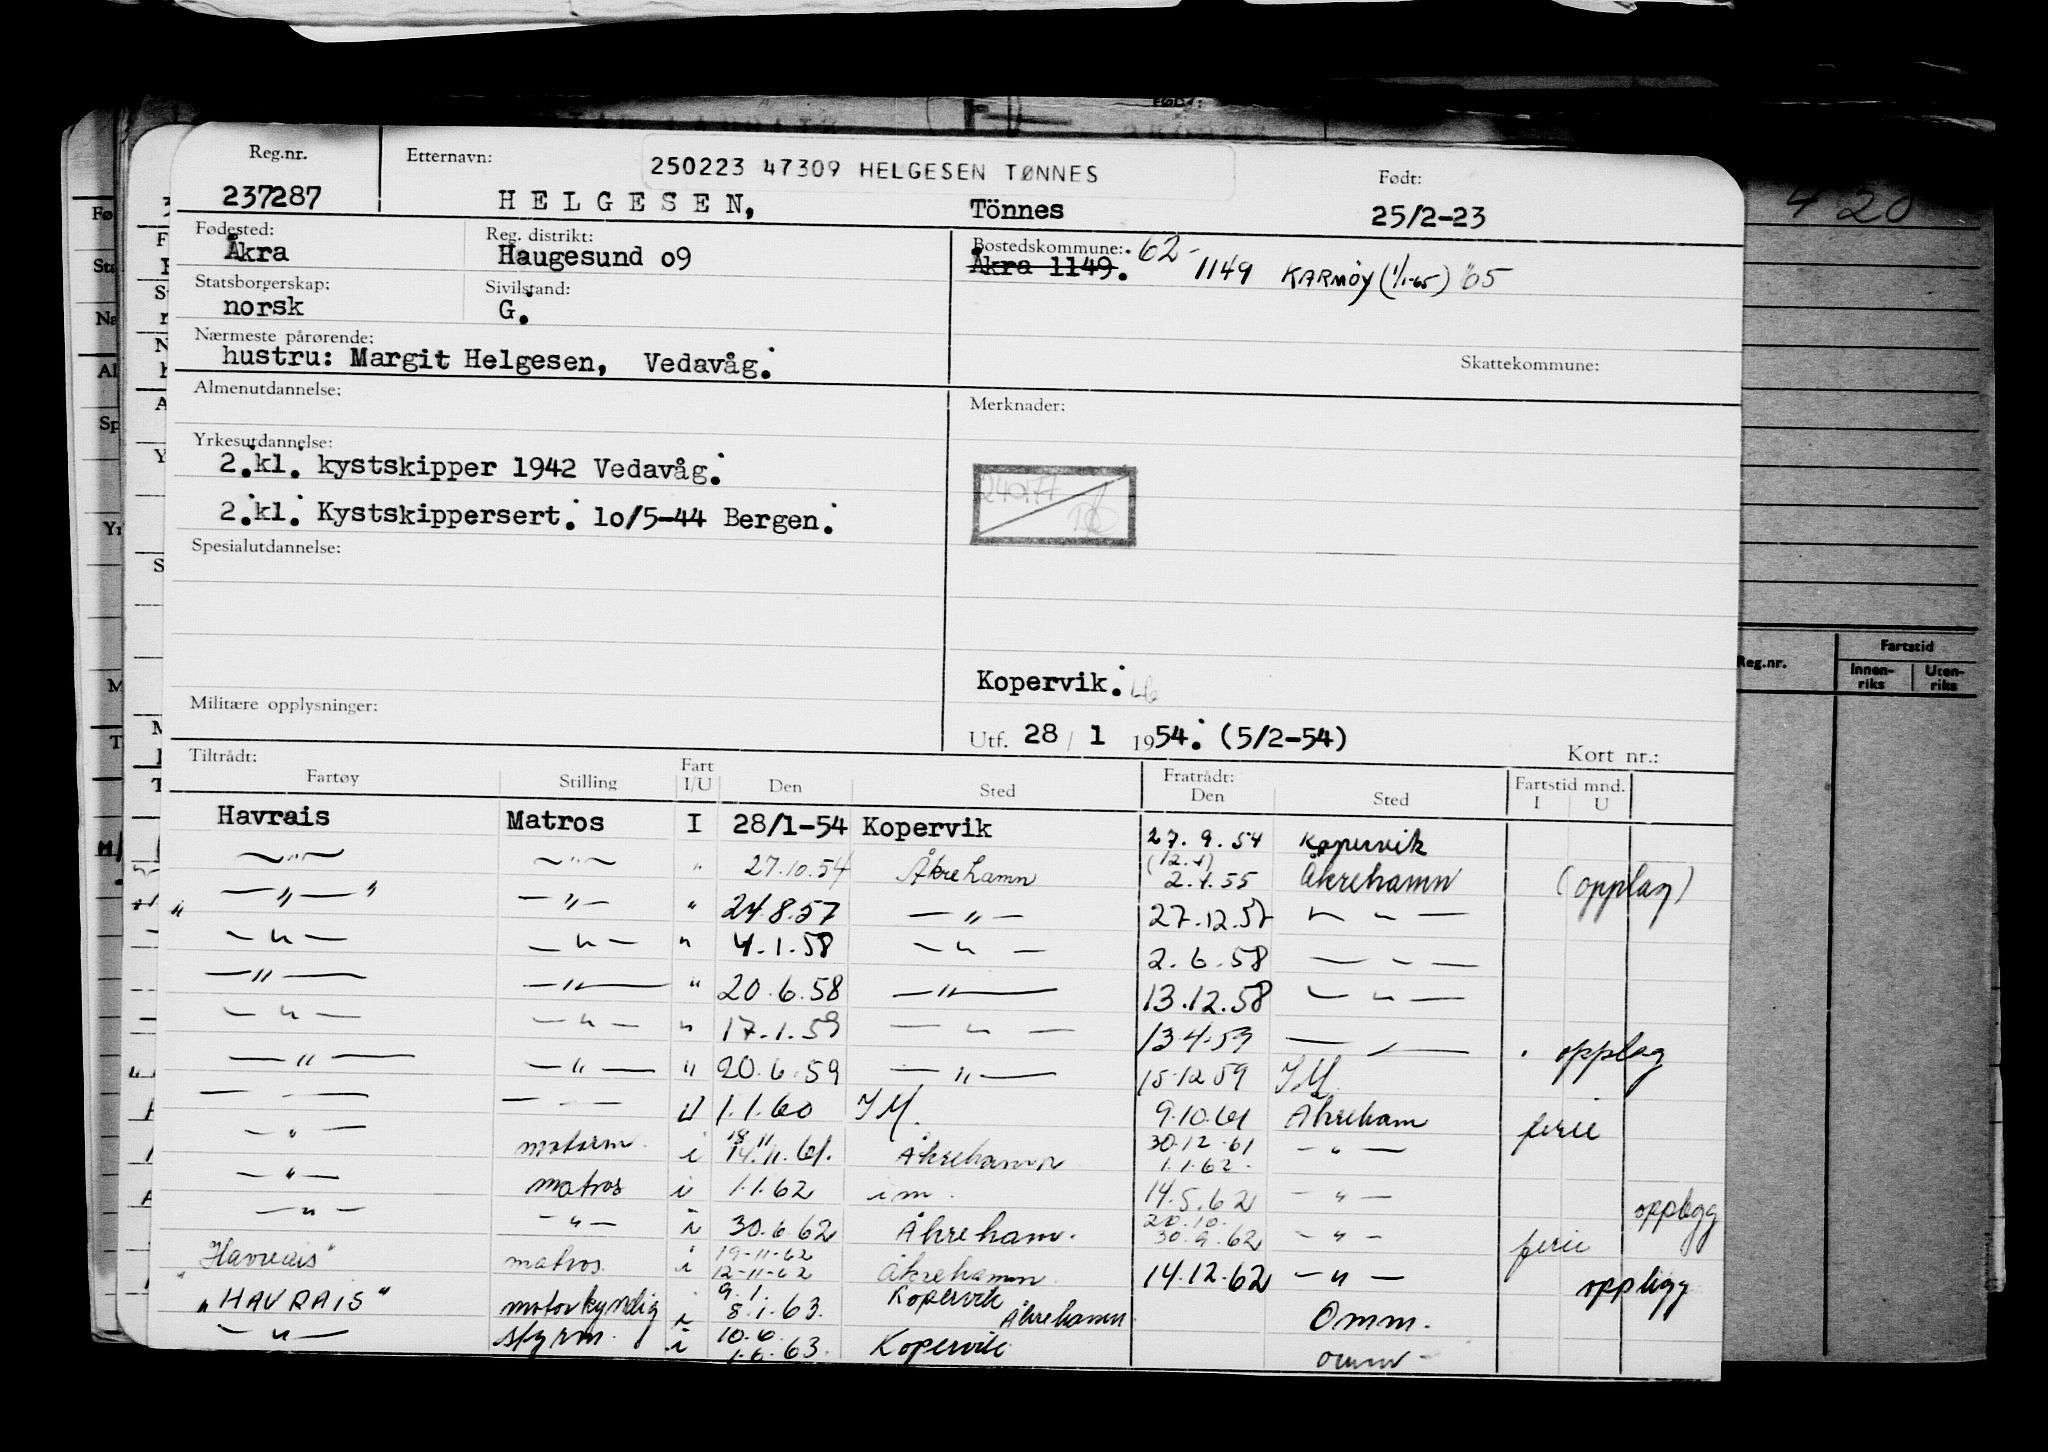 Reg.nr. Etternavn: 250223 47309 HELGESEN TØNNES Født:
237287 HELGESEN, Tönnes 25/2-23
Fødested: Reg. distrikt: Bostedskommune: 62-
Åkra Haugesund o9 Åkra 1149. 1149 KARMØY (1/1-65) 65
Statsborgerskap: Sivilstand:
norsk G.
Nærmeste pårørende:
hustru: Margit Helgesen, Vedavåg. Skattekommune:
Almenutdannelse: Merknader:
Yrkesutdannelse:
2.kl. kystskipper 1942 Vedavåg.
2.kl. Kystskippersert. lo/5-44 Bergen.
Spesialutdannelse:
Kopervik.
Militære opplysninger:
Utf. 28 / 1 1954. (5/2-54)
Tiltrådt: Kort nr.:
Fartøy Stilling Fart I/U Den Sted Fratrådt: Den Sted Fartstid mnd. I U
Havrais Matros I 28/1-54 Kopervik 27.9.54 Kopervik
—"— —"— " 27.10.54 Åkrehamn (12.4) 2.4.55 Åkrehamn (opplag)
" —"— " —"— " 24.8.57 —"— 27.12.57 —"—
—"— —"— " 4.1.58 —"— 2.6.58 —"—
—"— —"— " 20.6.58 —"— 13.12.58 —"—
—"— —"— " 17.1.59 —"— 13.4.59 —"— opplag
—"— —"— " 20.6.59 —"— 15.12.59 I M.
— — — — 1.1.60 I M. 9.10.61 Åkreham ferie
—"— motorm. i 18 11 14.11.61. Åkrehamn 30.12.61 1.1.62. —"—
—"— matros i 1.1.62 i m. 14.5.62 —"— opplegg
—"— —"— i 30.6.62 Åkreham. 20.10. 30.9.62 —"— ferie
"Havrais" matros i 19-11-62 12-11-62 Åkrehamn 14.12.62 —"— opplegg
"HAVRAIS" motorkyndig i 9.1. 8.1.63. Kopervik Åkrehamn Omm.
—"— styrm. i 10.6. 1.6.63. Kopervik omm-
4 20
Reg.nr. Fartstid
Innen-riks Uten-riks